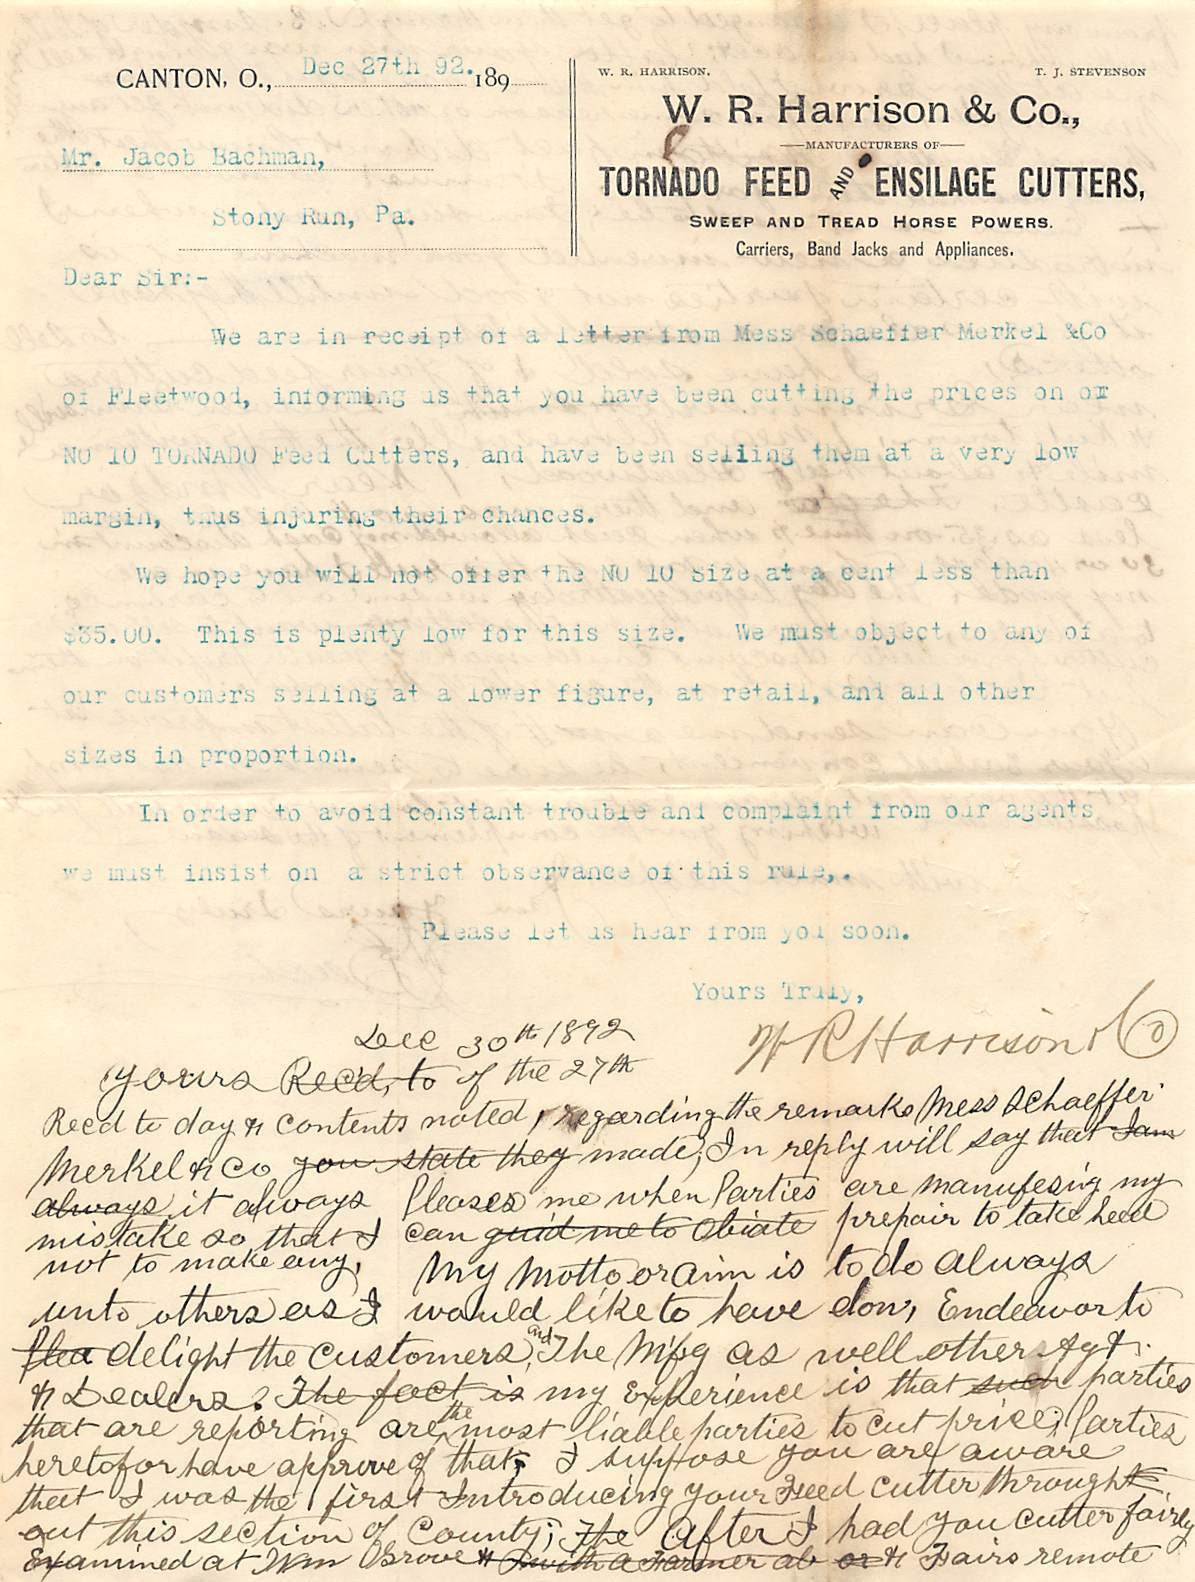 CANTON, O., Dec 27th 92. 189
W. R. HARRISON. T. J. STEVENSON
W. R. Harrison & Co.,
MANUFACTURERS OF
TORNADO FEED AND ENSILAGE CUTTERS,
SWEEP AND TREAD HORSE POWERS.
Carriers, Band Jacks and Appliances.
Mr. Jacob Bachman,
Stony Run, Pa.
Dear Sir:-
We are in receipt of a letter from Mess Schaeffer Merkel &Co
of Fleetwood, informing us that you have been cutting the prices on our
NO 10 TORNADO Feed Cutters, and have been selling them at a very low
margin, thus injuring their chances.
We hope you will not offer the NO 10 Size at a cent less than
$35.00. This is plenty low for this size. We must object to any of
our customers selling at a lower figure, at retail, and all other
sizes in proportion.
In order to avoid constant trouble and complaint from our agents
we must insist on a strict observance of this rule,.
Please let us hear from you soon.
Yours Truly,
W R Harrison & Co
Dec 30th 1892
Yours Rec'd, to of the 27th
Recd to day & contents noted, regarding the remarks Mess Schaeffer
Merkel & Co you state they made, In reply will say that I am
always it always pleases me when parties are manufesing my
mistake so that I can guid me to obiate prepair to take heed
not to make any, My Motto or aim is to do always
unto others as I would like to have don, Endeavor to
plea delight the customers, and The Mfg as well other Agt.
& Dealers. The fact is my Experience is that such parties
that are reporting are the most liable parties to cut price; Parties
heretofor have approve of that, I suppose you are aware
that I was the first Introducing your Feed cutter through
out this section of County; The After I had you cutter fairly
Examined at Wm Grove & with a Farmer ab or & Fairs remote